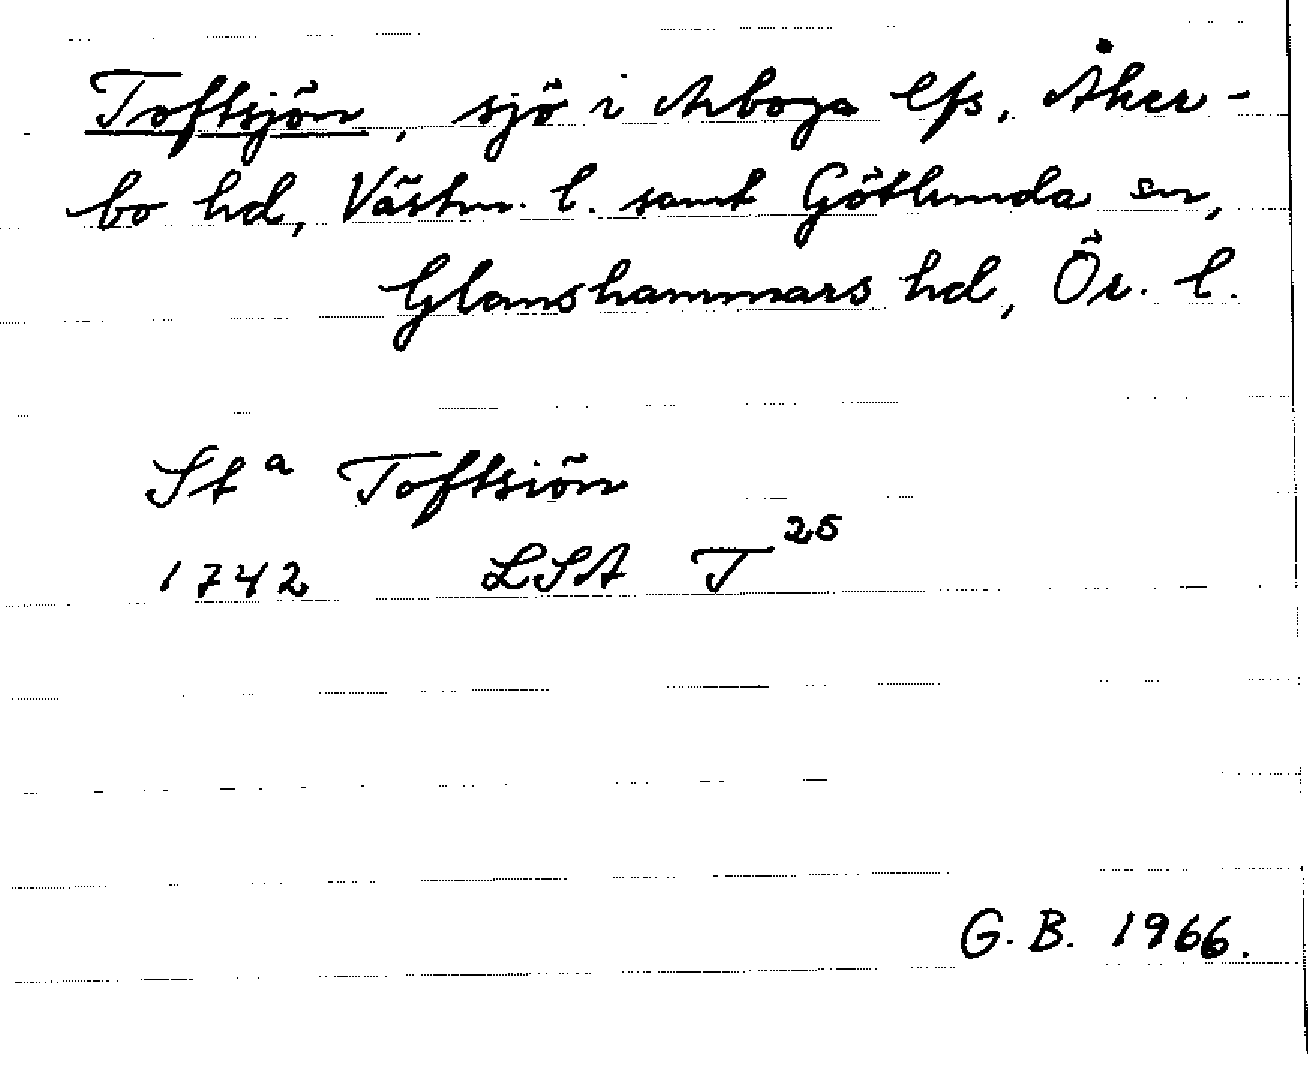 Toftsjön, sjö i Arboga lfs, Åker-
bo hd, Västm. l. samt Götlunda sn,
Glanshammars hd, Ör. l.
Stᵃ Toftsiön
1742 LSA T²⁵
G. B. 1966.